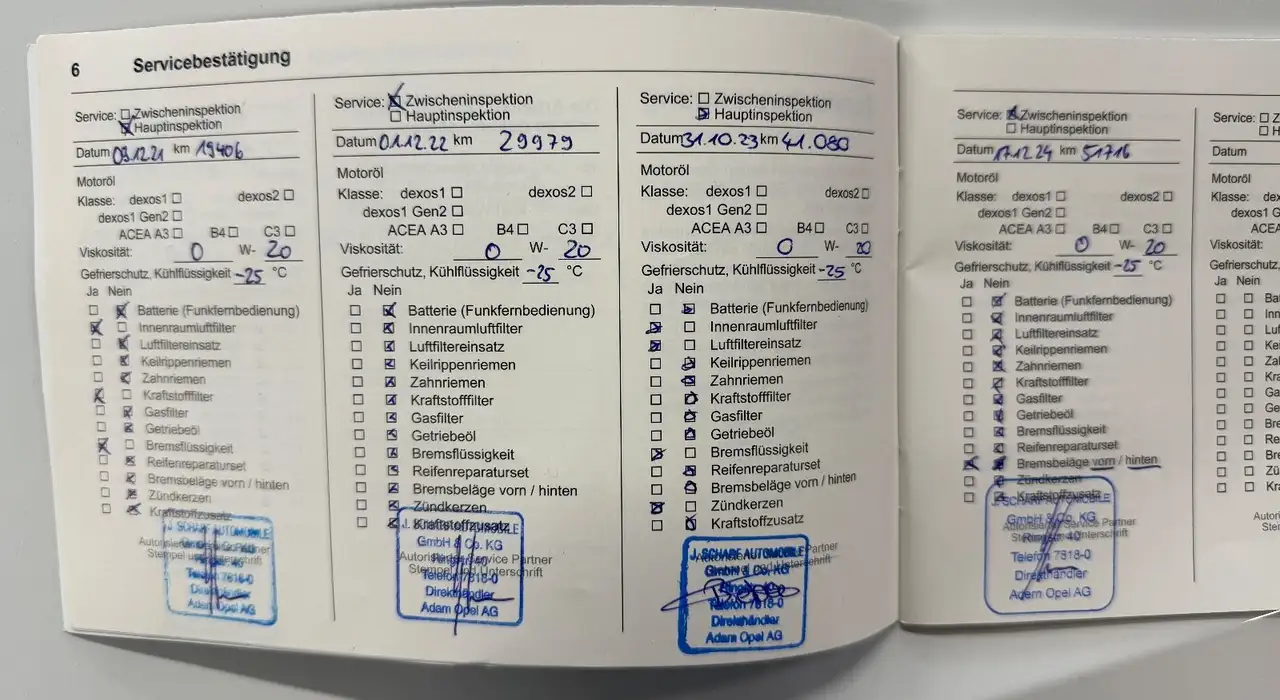 6 Servicebestätigung
Service: Zwischeninspektion
Hauptinspektion
Datum 08.12.21 km 19406
Motoröl
Klasse: dexos1 dexos2
dexos1 Gen2
ACEA A3 B4 C3
Viskosität: 0 W- 20
Gefrierschutz, Kühlflüssigkeit -25 °C
Ja Nein
Batterie (Funkfernbedienung)
Innenraumluftfilter
Luftfiltereinsatz
Keilrippenriemen
Zahnriemen
Kraftstofffilter
Gasfilter
Getriebeöl
Bremsflüssigkeit
Reifenreparaturset
Bremsbeläge vorn / hinten
Zündkerzen
Kraftstoffzusatz
J. SCHARF AUTOMOBILE
Telefon 7818-0
Direkthändler
Adam Opel AG
Service: Zwischeninspektion
Hauptinspektion
Datum 01.12.22 km 29979
Motoröl
Klasse: dexos1 dexos2
dexos1 Gen2
ACEA A3 B4 C3
Viskosität: 0 W- 20
Gefrierschutz, Kühlflüssigkeit -25 °C
Ja Nein
Batterie (Funkfernbedienung)
Innenraumluftfilter
Luftfiltereinsatz
Keilrippenriemen
Zahnriemen
Kraftstofffilter
Gasfilter
Getriebeöl
Bremsflüssigkeit
Reifenreparaturset
Bremsbeläge vorn / hinten
Zündkerzen
Kraftstoffzusatz
J. SCHARF AUTOMOBILE
GmbH & Co. KG
Autorisierter Service Partner
Stempel und Unterschrift
Telefon 7818-0
Direkthändler
Adam Opel AG
Service: Zwischeninspektion
Hauptinspektion
Datum 31.10.23 km 41.080
Motoröl
Klasse: dexos1 dexos2
dexos1 Gen2
ACEA A3 B4 C3
Viskosität: 0 W- 20
Gefrierschutz, Kühlflüssigkeit -25 °C
Ja Nein
Batterie (Funkfernbedienung)
Innenraumluftfilter
Luftfiltereinsatz
Keilrippenriemen
Zahnriemen
Kraftstofffilter
Gasfilter
Getriebeöl
Bremsflüssigkeit
Reifenreparaturset
Bremsbeläge vorn / hinten
Zündkerzen
Kraftstoffzusatz
J. SCHARF AUTOMOBILE
Partner
GmbH & Co. KG
Telefon 7818-0
Direkthändler
Adam Opel AG
Service: Zwischeninspektion
Hauptinspektion
Datum 17.12.24 km 51716
Motoröl
Klasse: dexos1 dexos2
dexos1 Gen2
ACEA A3 B4 C3
Viskosität: 0 W- 20
Gefrierschutz, Kühlflüssigkeit -25 °C
Ja Nein
Batterie (Funkfernbedienung)
Innenraumluftfilter
Luftfiltereinsatz
Keilrippenriemen
Zahnriemen
Kraftstofffilter
Gasfilter
Getriebeöl
Bremsflüssigkeit
Reifenreparaturset
Bremsbeläge vorn / hinten
Zündkerzen
Kraftstoffzusatz
J. SCHARF AUTOMOBILE
GmbH & Co. KG
Service Partner
Ringstr. 40
Telefon 7818-0
Direkthändler
Adam Opel AG
Service: Z
H
Datum
Motoröl
Klasse: de
dexos1 G
ACEA
Viskosität:
Gefrierschutz,
Ja Nein
Ba
Inn
Lu
Kei
Zal
Kra
Ga
Ge
Bre
Rei
Bre
Zü
Kra
Autori
Ste